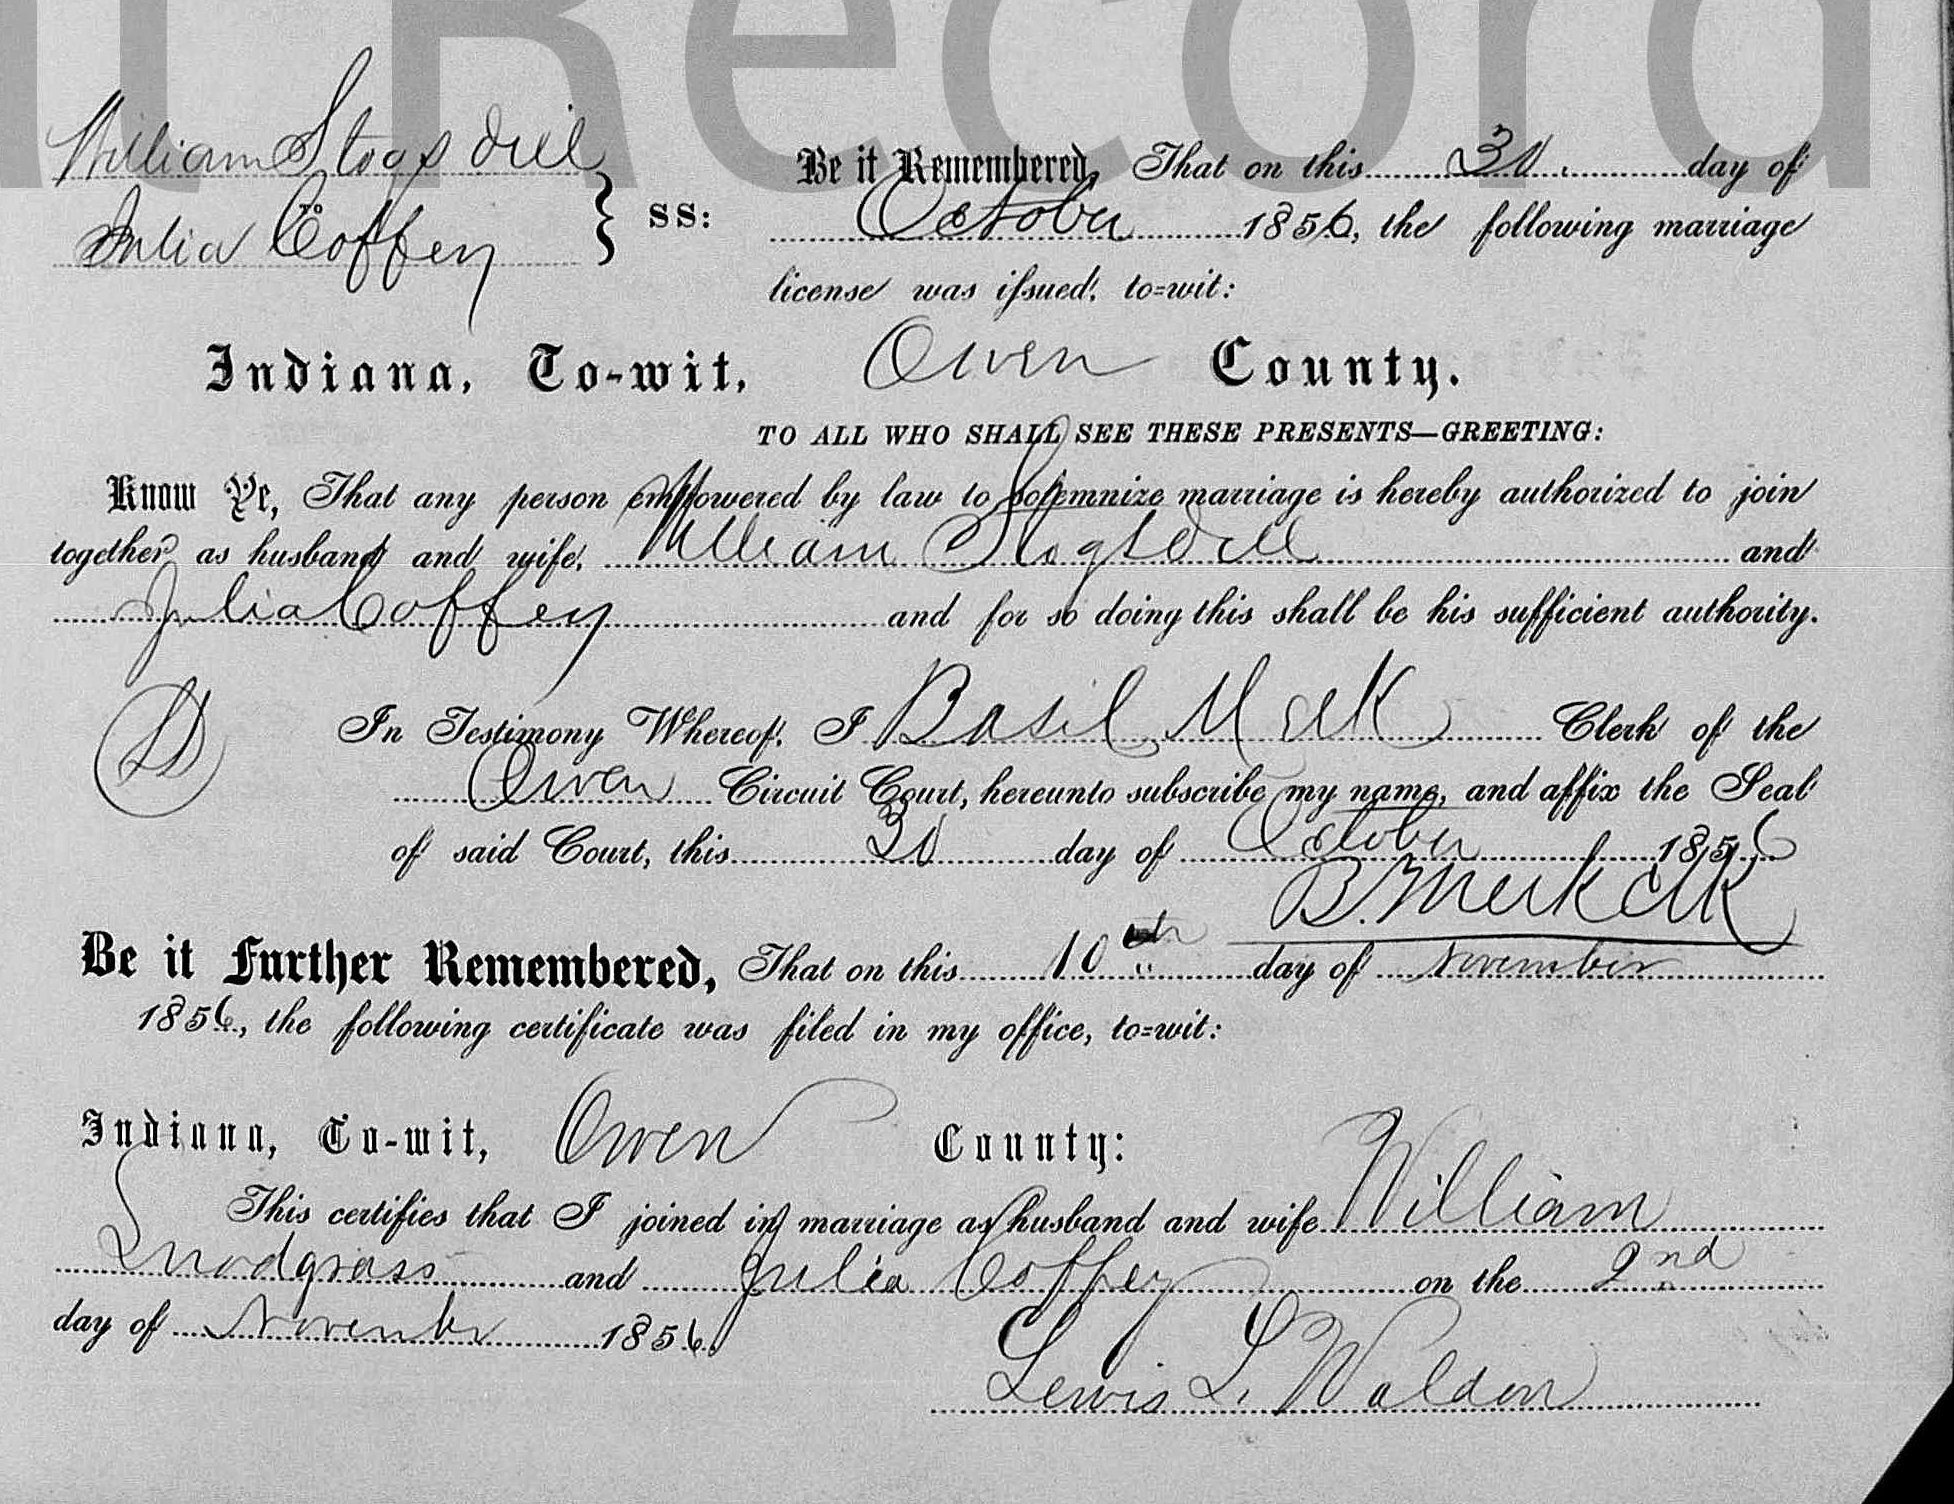 t Record
William Stogsdill
TO
Julia Coffey
SS:
Be it Remembered, That on this 30 day of
October 1856, the following marriage
license was issued, to=wit:
Indiana, To-wit, Owen County.
TO ALL WHO SHALL SEE THESE PRESENTS—GREETING:
Know Ye, That any person empowered by law to solemnize marriage is hereby authorized to join
together as husband and wife, William Stogsdill and
Julia Coffey and for so doing this shall be his sufficient authority.
In Testimony Whereof, I Basil Meek Clerk of the
Owen Circuit Court, hereunto subscribe my name, and affix the Seal
of said Court, this 30 day of October 1856
B. Meek Clk
Be it Further Remembered, That on this 10th day of November
1856, the following certificate was filed in my office, to=wit:
Indiana, To-wit, Owen County:
This certifies that I joined in marriage as husband and wife William
Snodgrass and Julia Coffey on the 2nd
day of November 1856.
Lewis L. Waldon